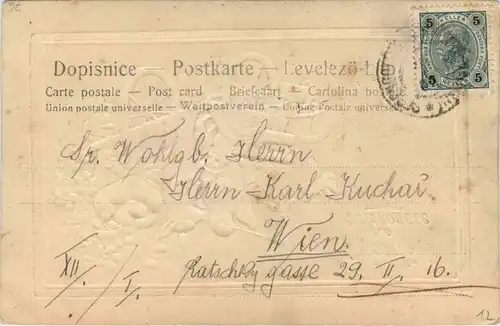 5 5
5 5
Dopisnice — Postkarte — Levelező-
Carte postale — Post card — Briefcaart — Cartolina
Union postale universelle — Weltpostverein — Unione Postale universale
Sr. Wohlgb. Herrn
Herrn Karl Kuchař
Wien.
XII./I. Ratschkygasse 29. II. 16.
12